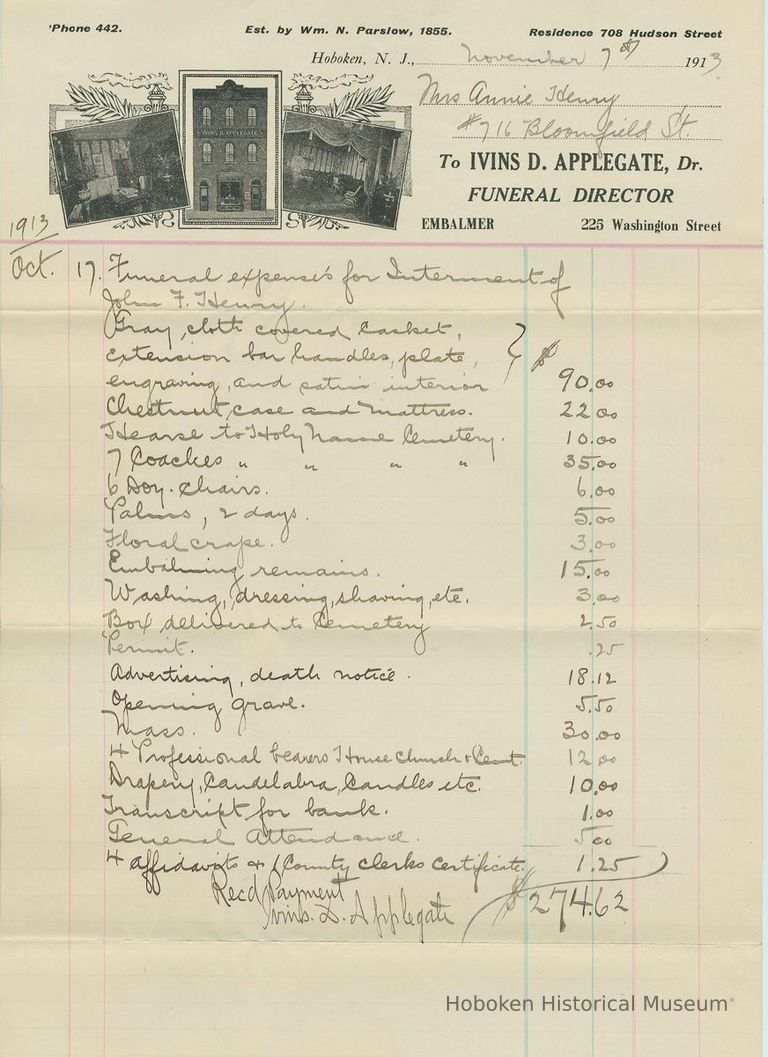 'Phone 442.
Est. by Wm. N. Parslow, 1855.
Residence 708 Hudson Street
Hoboken, N. J., November 7th 1913
Mrs Annie Henry
#716 Bloomfield St.
To IVINS D. APPLEGATE, Dr.
FUNERAL DIRECTOR
EMBALMER 225 Washington Street
IVINS D. APPLEGATE
1913
Oct. 17. Funeral expenses for Interment of
John F. Henry.
Gray, cloth covered casket,
extension bar handles, plate, $
engraving, and satin interior 90.00
Chestnut case and Mattress. 22.00
Hearse to Holy Name Cemetery. 10.00
7 Coaches " " " " 35.00
6 Doz. chairs. 6.00
Palms, 2 days. 5.00
Floral crape. 3.00
Embalming remains. 15.00
Washing, dressing, shaving, etc. 3.00
Box delivered to Cemetery 2.50
Permit. .25
Advertising, death notice. 18.12
Opening grave. 5.50
Mass. 30.00
4 Professional bearers House church & Cemt. 12.00
Drapery, Candelabra, Candles etc. 10.00
Transcript for bank. 1.00
General Attendance. 5.00
4 affidavits & 1 County Clerks Certificate. 1.25
Recd Payment $274.62
Ivins. D. Applegate
Hoboken Historical Museum